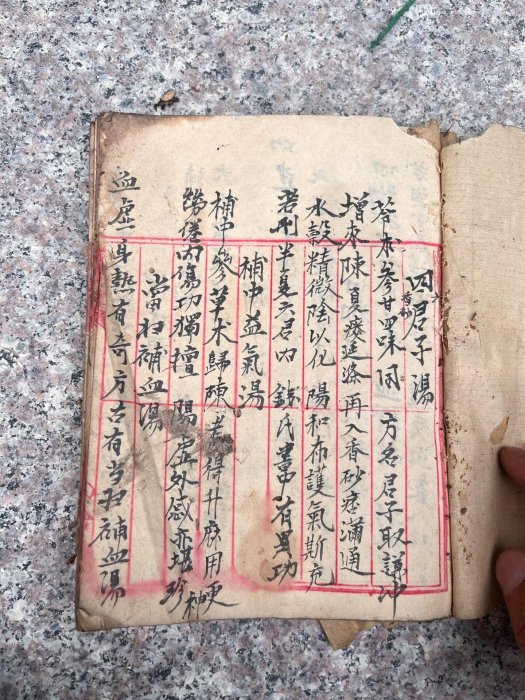 四君子湯
苓朮參甘四味同 方名君子取謙冲
增來陳夏痰涎滌 再入香砂痞滿通
水穀精微陰以化 陽和布護氣斯充
若刪半夏六君內 錢氏書中有異功
補中益氣湯
補中參草朮歸陳 芪得升麻用更神
勞倦內傷功獨擅 陽虛外感亦堪珍
當归補血湯
血虛身熱有奇方 古有当归補血湯